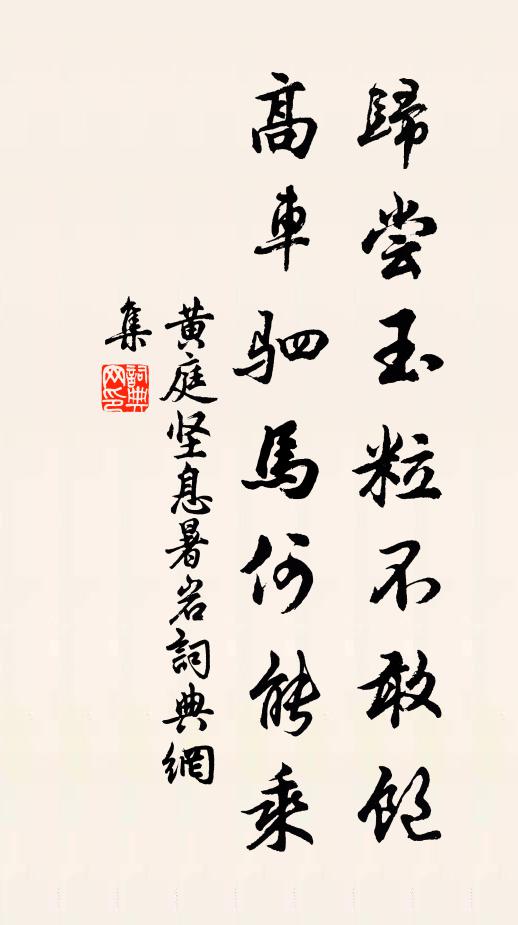 歸嘗玉粒不敢飽
高車駟馬何能乘
黃庭坚息暑岩詞典網
集
詞典
网印